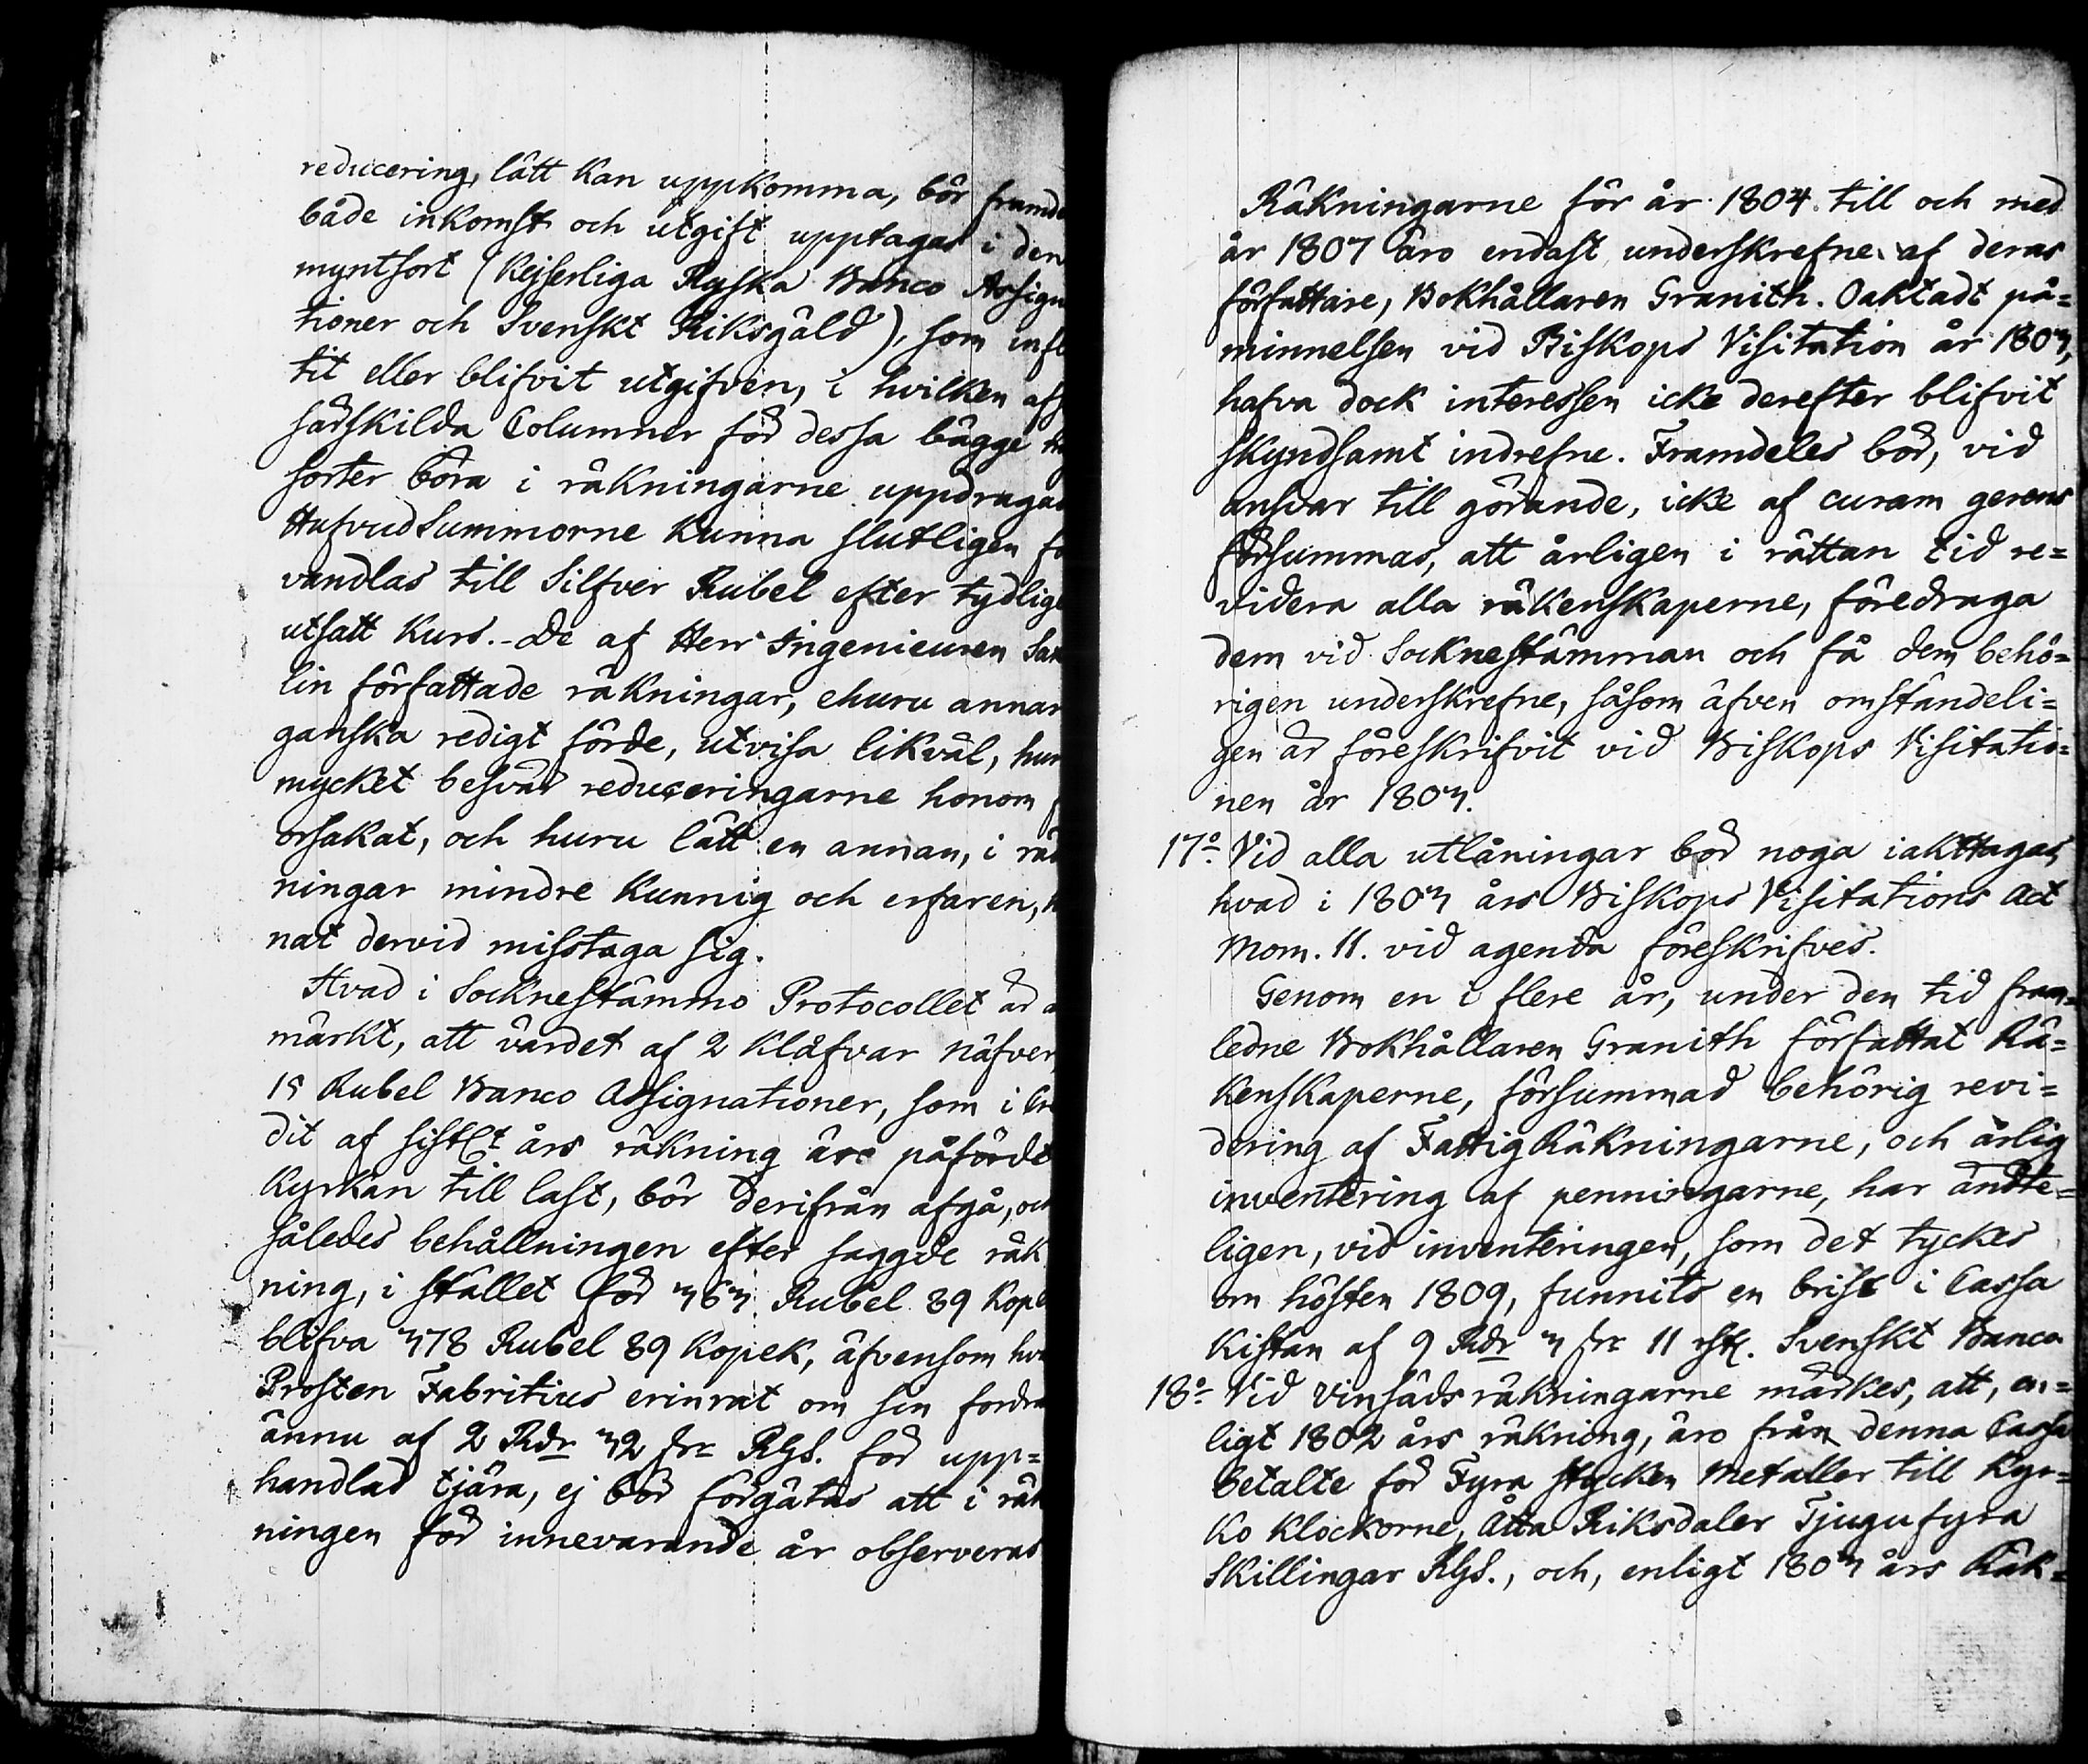 reducering, lätt kan uppkomma, bör framde
både inkomst och utgift upptagas i den
myntsort (Kejserliga Ryska Banco Assigna
tioner och Svenskt Riksgäld), som infl
tit eller blifvit utgifven, i hvilken afs
särskilda Columner för dessa bägge
sorter böra i räkningarne uppdragas
Hufvudsummorne kunna slutligen fö
vandlas till Silfver Rubel efter tydlige
utsatt kurs. De af Herr Ingenieuren Sax
lin författade räkningar, ehuru annar
ganska redigt förde, utvisa likväl, hur
mycket besvär reduceringarne honom
orsakat, och huru lätt en annan, i räk
ningar mindre kunnig och erfaren,
nat dervid misstaga sig.
Hvad i Sockneståmmo Protocollet är a
märkt, att värdet af 2 klåfvar näfver,
15 Rubel Banco Assignationer, som i Cre
dit af sistl:t års räkning äro påförde
Kyrkan till last, bör derifrån afgå, och
således behållningen efter saggde räk
ning, i stället för 363 Rubel 89 kope
blifva 378 Rubel 89 kopek, äfvensom hva
Prosten Fabritius erinrat om sin fordra
ännu af 2 Rdr 32 sr RGS. för upp=
handlad tjära, ej bör förgätas att i räk
ningen för innevarande år observeras
Räkningarne för år 1804 till och med
år 1807 äro endast underskrefne af deras
författare, Bokhållaren Granith. Oaktadt på=
minnelsen vid Biskops Visitation år 1803,
hafva dock interessen icke derefter blifvit
skyndsamt indrefne. Framdeles bör, vid
ansvar till görande, icke af curam gerens
försummas, att årligen i rättan tid re=
videra alla räkenskaperne, föredraga
dem vid Socknestämman och få dem behö=
rigen underskrefne, såsom äfven omståndeli=
gen är föreskrifvit vid Biskops Visitatio=
nen år 1803.
17:o Vid alla utlåningar bör noga iakttagas,
hvad i 1803 års Biskops Visitations Act
Mom. 11. vid agenda föreskrifves.
Genom en i flere år, under den tid fram=
ledne Bokhållaren Granith författat Rä=
kenskaperne, försummad behörig revi=
dering af Fattig Räkningarne, och årlig
inventering af penningarne, har ändte=
ligen, vid inventeringen, som det tyckes
om hösten 1809, funnits en brist i Cassa
kistan af 9 Rdr 3 sr 11 rst. Svenskt Banco
18:o Vid vinsäds räkningarne märkes, att, en=
ligt 1802 års räkning, äro från denna Cassa
betalte för Fyra stycken Metaller till Kyr=
ko klockorne, Åtta Riksdaler Tjugufyra
Skillingar RGS., och, enligt 1803 års Räk=